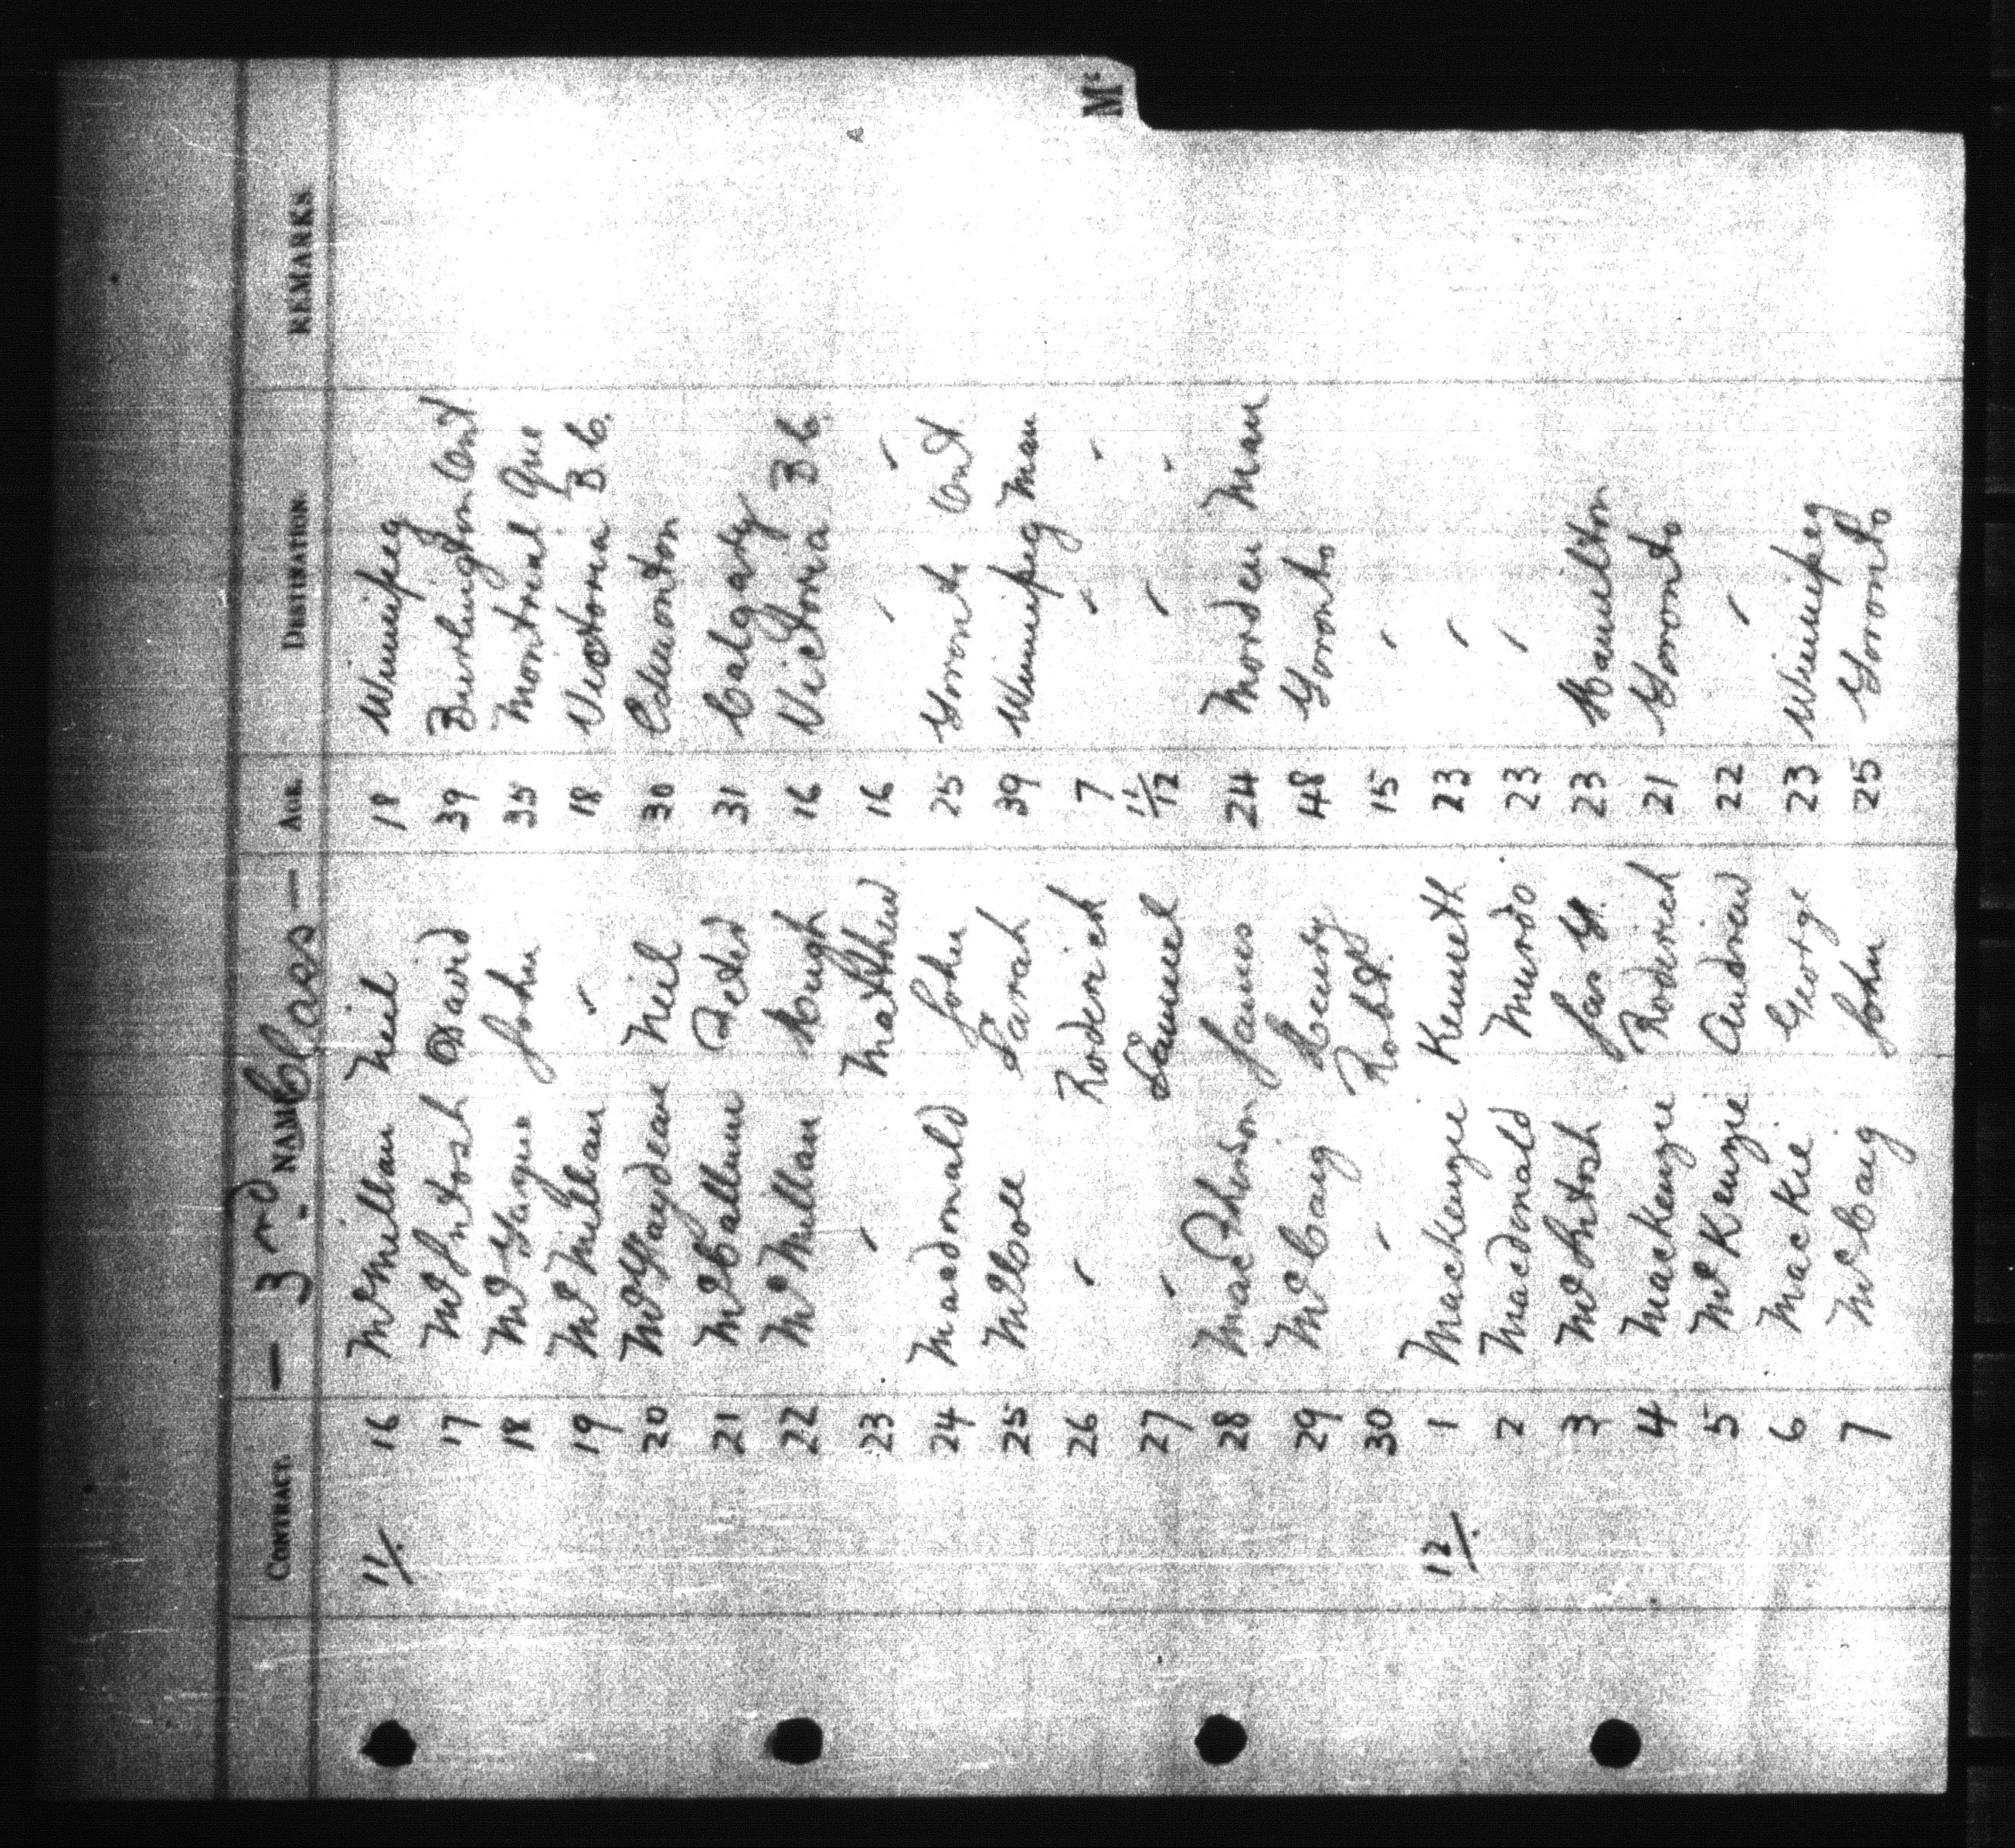 Mc
— 3rd. Class —
CONTRACT. NAME AGE. DESTINATION REMARKS
11/. 16 McMillan Neil 18 Winnipeg
17 McIntosh David 39 Burlington Ont
18 McGague John 35 Montreal Que
19 McMillan " 18 Victoria B C.
20 Neil 30 Edmonton
21 McCallum Peter 31 Calgary
22 McMillan Hugh 16 Victoria B C.
23 " Matthew 16 " "
24 Macdonald John 25 Toronto Ont.
25 McColl Sarah 39 Winnipeg Man
26 " Roderick 7 " "
27 " Samuel 11/12 " "
28 MacPherson James 24 Morden Man
29 McCaig Henry 48 Toronto
30 " Robt. 15 "
12/. 1 Mackenzie Kenneth 23 "
2 Macdonald Murdo 23 "
3 McIntosh Jas G. 23 Hamilton
4 Mackenzie Roderick 21 Toronto
5 McKenzie Andrew 22 "
6 Mackie George 23 Winnipeg
7 McCaig John 25 Toronto